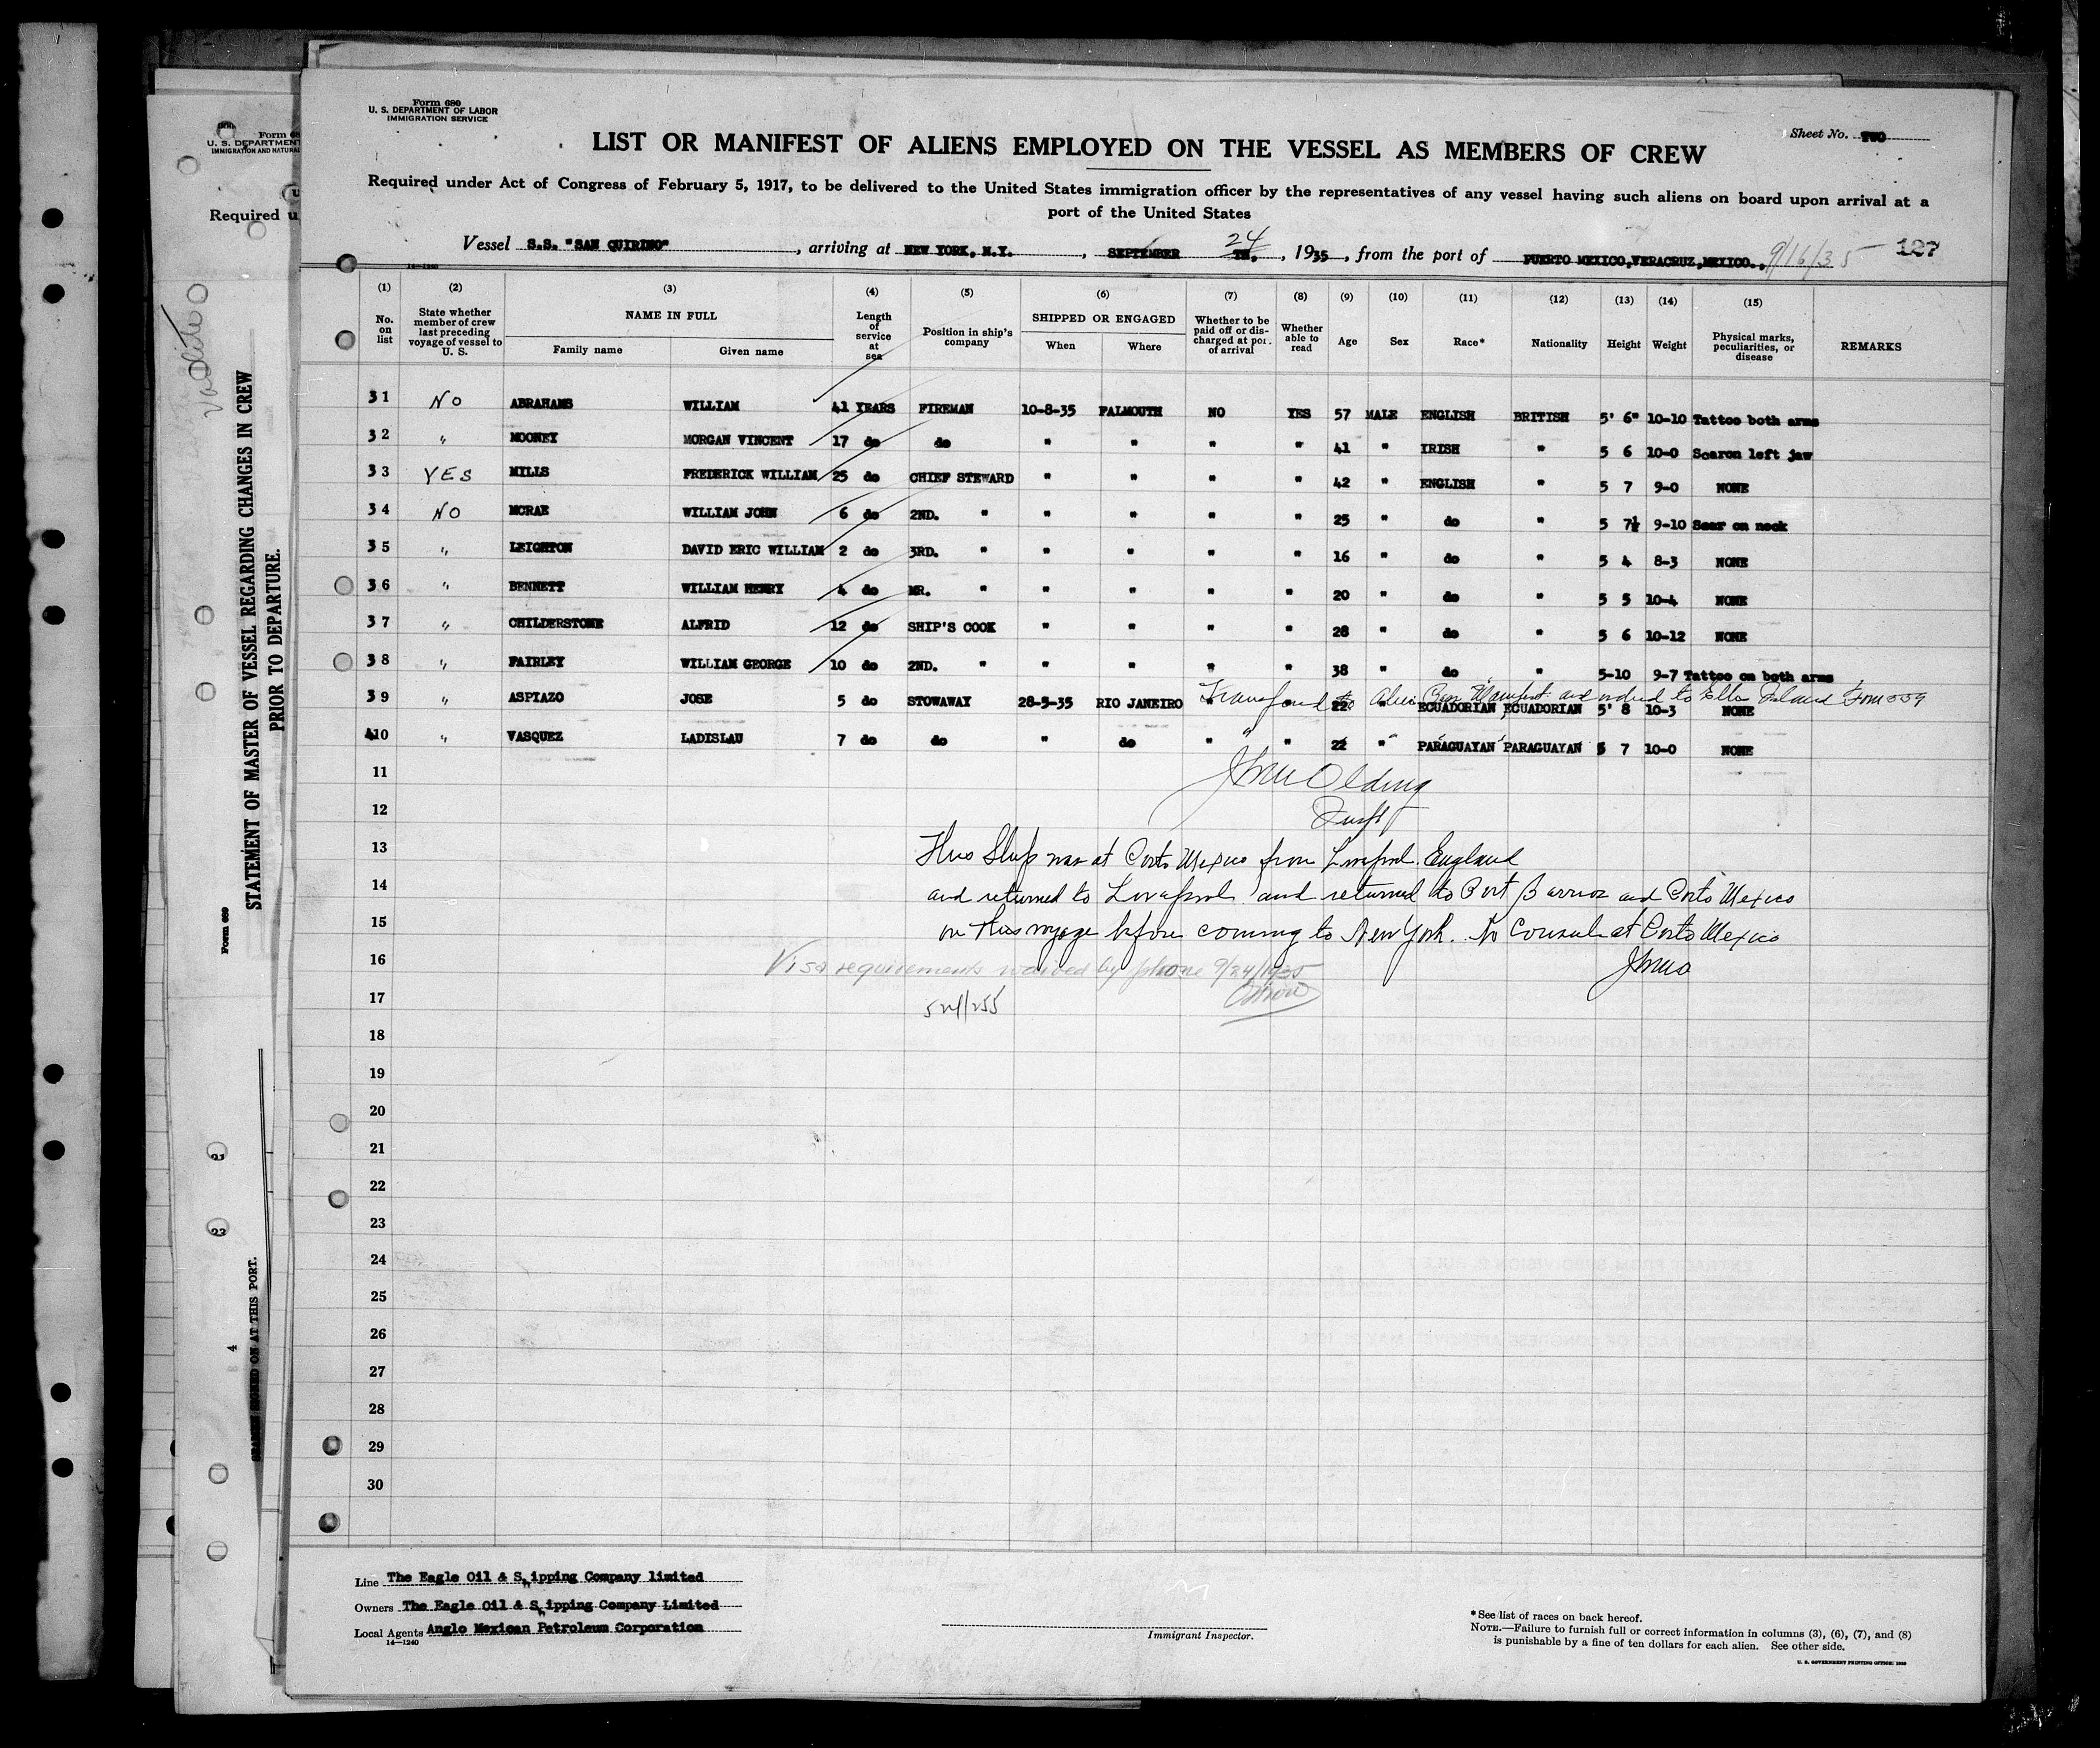 Form 680
U. S. DEPARTMENT OF LABOR
IMMIGRATION SERVICE
Sheet No. TWO
LIST OR MANIFEST OF ALIENS EMPLOYED ON THE VESSEL AS MEMBERS OF CREW
Required under Act of Congress of February 5, 1917, to be delivered to the United States immigration officer by the representatives of any vessel having such aliens on board upon arrival at a
port of the United States
Vessel S.S. "SAN QUIRINO", arriving at NEW YORK, N.Y., SEPTEMBER 24 TH., 1935, from the port of PUERTO MEXICO,VERACRUZ,MEXICO., 9/16/35 127
14-1240
(1) (2) (3) (4) (5) (6) (7) (8) (9) (10) (11) (12) (13) (14) (15)
No. on list
State whether member of crew last preceding voyage of vessel to U. S.
NAME IN FULL
Family name Given name
Length of service at sea
Position in ship's company
SHIPPED OR ENGAGED
When Where
Whether to be paid off or discharged at port of arrival
Whether able to read
Age Sex Race* Nationality Height Weight
Physical marks, peculiarities, or disease
REMARKS
31 NO ABRAHAMS WILLIAM 41 YEARS FIREMAN 10-8-35 FALMOUTH NO YES 57 MALE ENGLISH BRITISH 5' 6" 10-10 Tattoo both arms
32 " MOONEY MORGAN VINCENT 17 do do " " " " 41 " IRISH " 5 6 10-0 Scaron left jaw
33 YES MILLS FREDERICK WILLIAM 25 do CHIEF STEWARD " " " " 42 " ENGLISH " 5 7 9-0 NONE
34 NO MCRAE WILLIAM JOHN 6 do 2ND. " " " " " 25 " do " 5 7½ 9-10 Scar on neck
35 " LEIGHTON DAVID ERIC WILLIAM 2 do 3RD. " " " " " 16 " do " 5 4 8-3 NONE
36 " BENNETT WILLIAM HENRY 4 do MR. " " " " " 20 " do " 5 5 10-4 NONE
37 " CHILDERSTONE ALFRID 12 do SHIP'S COOK " " " " 28 " do " 5 6 10-12 NONE
38 " FAIRLEY WILLIAM GEORGE 10 do 2ND. " " " " " 38 " do " 5-10 9-7 Tattoo on both arms
39 " ASPIAZO JOSE 5 do STOWAWAY 28-5-35 RIO JANEIRO " " 22 " ECUADORIAN ECUADORIAN 5' 8 10-3 NONE
Manifest and ordered to Ellis Island Form 559
410 " VASQUEZ LADISLAU 7 do do " do " " 22 " PARAGUAYAN PARAGUAYAN 5 7 10-0 NONE
11
12
13 This Ship was at Porto Mexico from Liverpool. England
14 and returned to Liverpool and returned to Port Barrios and Porto Mexico
15 on this voyage before coming to New York. No Consul at Porto Mexico
16 Visa requirements waived by phone 9/24/1935
17
18
19
20
21
22
23
24
25
26
27
28
29
30
Line The Eagle Oil & Shipping Company limited
Owners The Eagle Oil & Shipping Company Limited
Local Agents Anglo Mexican Petroleum Corporation
14-1240
Immigrant Inspector.
*See list of races on back hereof.
NOTE.—Failure to furnish full or correct information in columns (3), (6), (7), and (8)
is punishable by a fine of ten dollars for each alien. See other side.
U. S. GOVERNMENT PRINTING OFFICE: 1930
Form 689
STATEMENT OF MASTER OF VESSEL REGARDING CHANGES IN CREW
PRIOR TO DEPARTURE.
U. S. DEPARTMENT
Required u